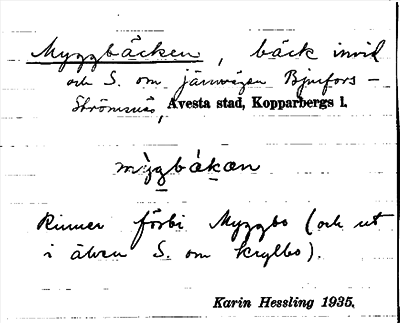 Myggbäcken, bäck invid
och S. om järnvägen Bjurfors –
Strömsnäs, Avesta stad, Kopparbergs l.
mỳgbákan
Rinner förbi Myggbo (och ut
i älven S. om Krylbo).
Karin Hessling 1935.